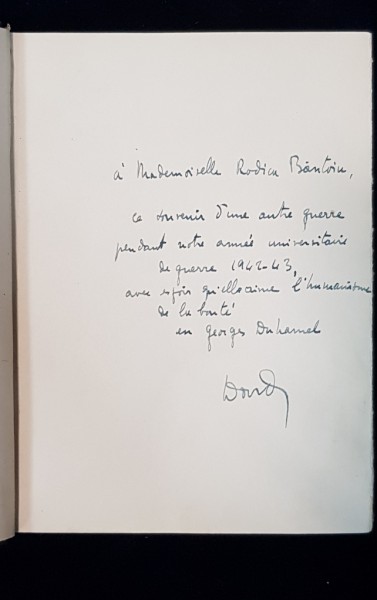 à Mademoiselle Rodica
ce souvenir d'une autre guerre
pendant notre année universitaire
de guerre 1942-43,
avec espoir qu'elle aime l'humanisme
de la bonté
en Georges Duhamel